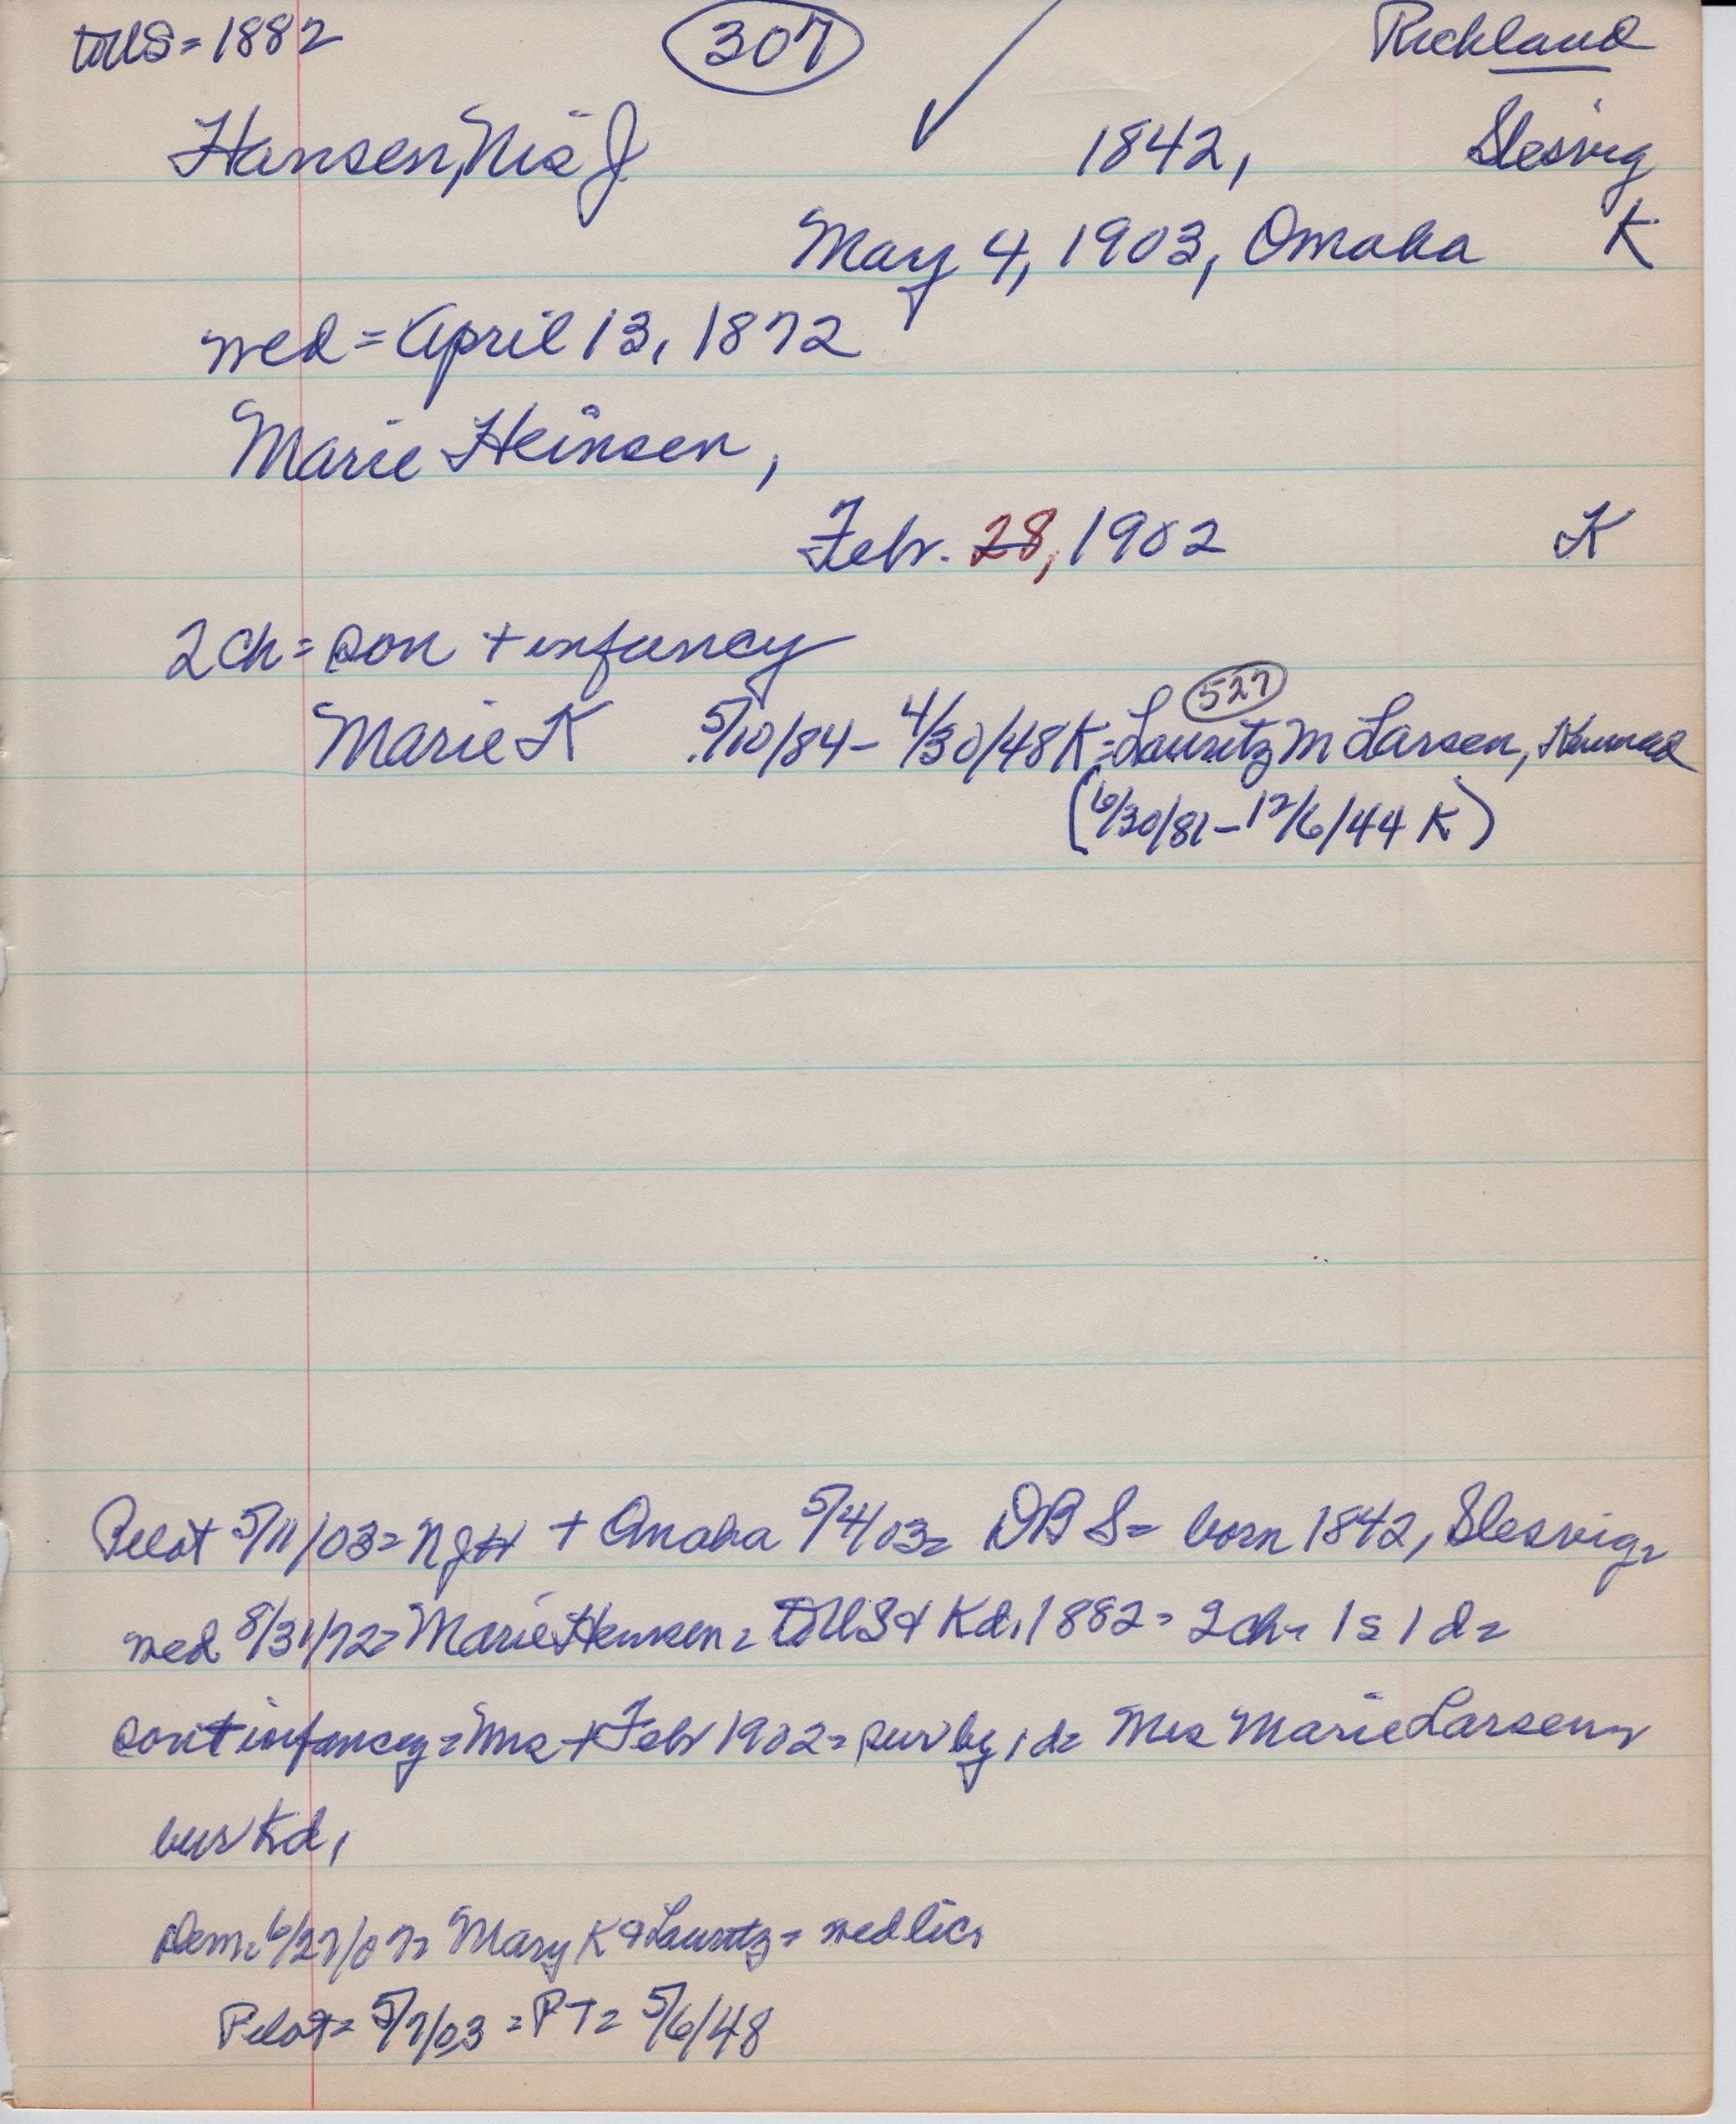 toUS = 1882 307 Richland
Hansen, Nis J. 1842, Slesvig
May 4, 1903, Omaha K
wed = April 13, 1872
Marie Heinsen,
Febr. 28, 1902 K
2 ch = son + infancy
Marie K 5/10/84 - 4/30/48 K = Lauritz M Larsen, Kennard
527
(6/30/81 - 12/6/44 K)
Pilot 5/11/03 = NJH + Omaha 5/4/03 = DBS = born 1842, Slesvig =
wed 8/31/72 = Marie = toUS & Kd. 1882 = 2 ch = 1 s 1 d =
son + infancy = Mrs + Febr 1902 = sur by 1 d = Mrs Marie Larsen
bur Kd.
Dem. 6/27/07 = Mary K & Lauritz = wed lic.
Pilot = 5/7/03 = PT = 5/6/48